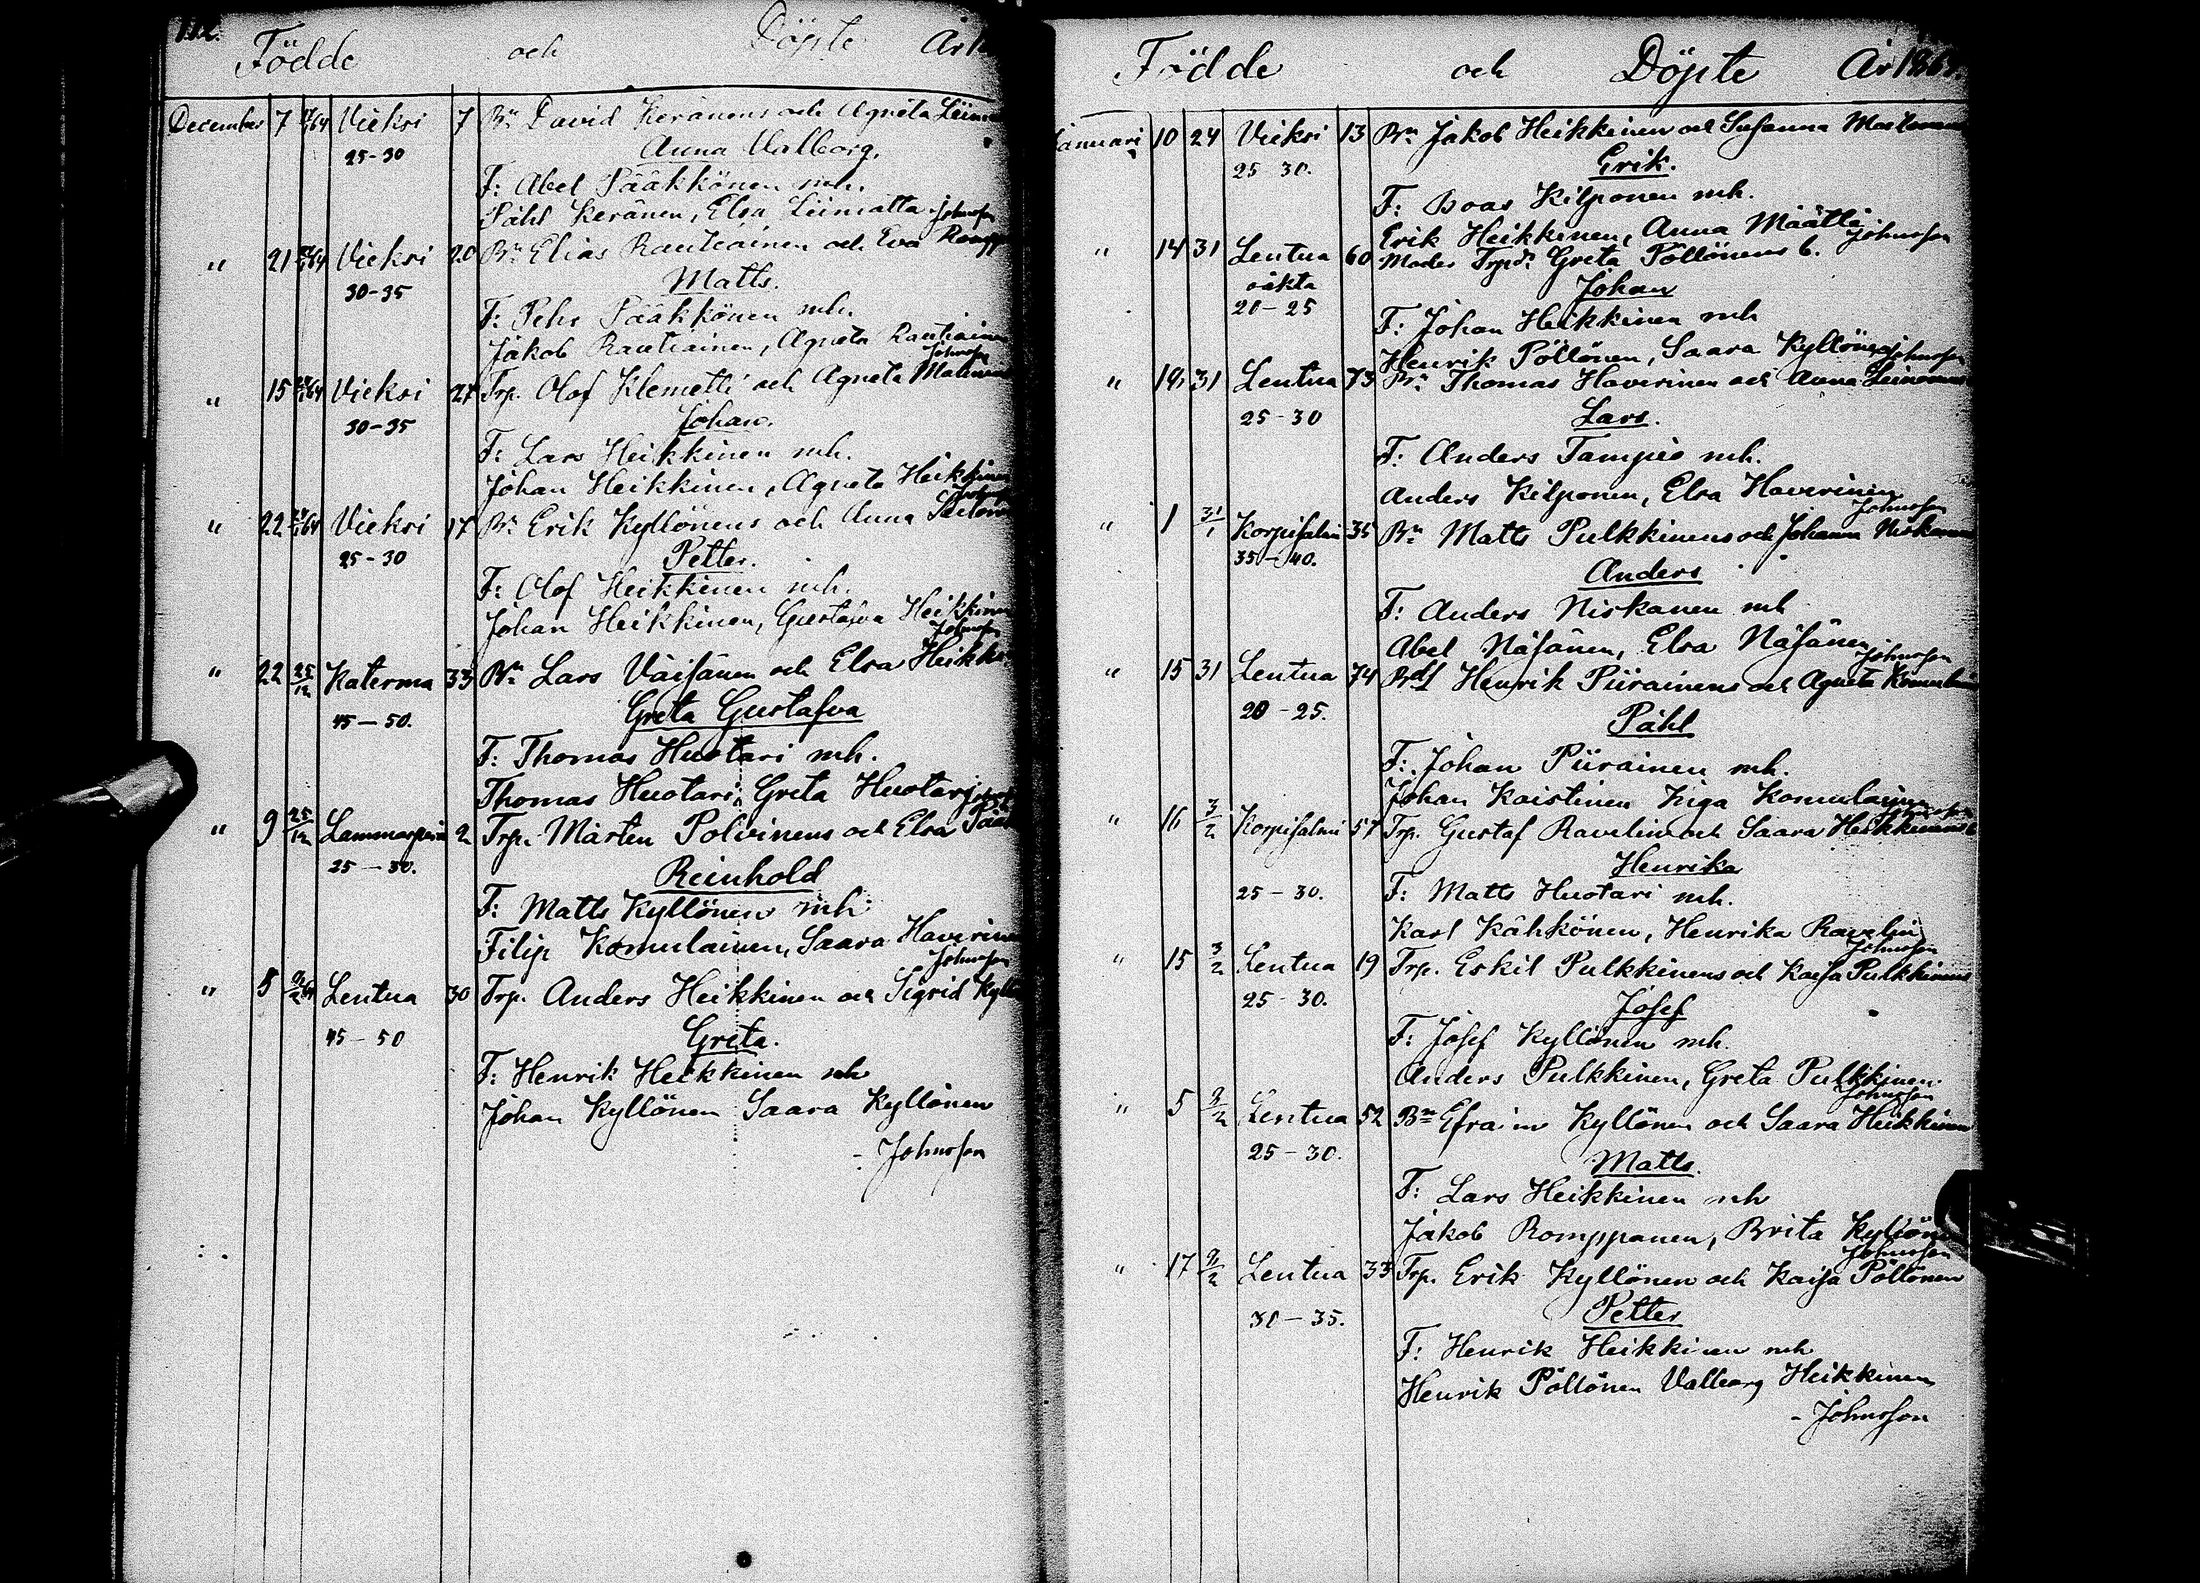 Födde och Döpte År
December 7 Vieksi 7 Bn David Keränens och Agneta
25-30 Anna Valborg.
F: Abel Pääkkönen mh.
Påhl Keränen, Elsa Liimatta Johnsson
" 21 Vieksi 20 Bn Elias Rautiainen och Eva
30-35 Matts.
F: Pehr Pääkkönen mh.
Jakob Rautiainen, Agneta Rautiainen
Johnsson
" 15 Vieksi 27 Trp. Olof Klemetti och Agneta
30-35 Johan.
F: Lars Heikkinen mh.
Johan Heikkinen, Agneta Heikkinen
" 22 Vieksi 17 Bn Erik Kyllönens och Anna
25-30 Petter.
F: Olof Heikkinen mh.
Johan Heikkinen, Gustafva Heikkinen
Johnsson
" 22 25/12 Katerma 33 Bn Lars Väisänen och Elsa
45-50. Greta Gustafva
F: Thomas Huotari mh.
Thomas Huotari, Greta Huotari
" 9 25/12 Lammasperä 2 Trp. Mårten Polvinens och Elsa
25-30. Reinhold
F: Matts Kyllönen mh
Filip Komulainen, Saara Haverinen
Johnsson
" 5 Lentua 30 Trp. Anders Heikkinen och Sigrid
45-50 Greta.
F: Henrik Heikkinen mh
Johan Kyllönen Saara Kyllönen
- Johnsson
Födde och Döpte År 1865.
Januari 10 24 Vieksi 13 Bn Jakob Heikkinen och Susanna
25-30. Erik.
F: Boas Kilponen mh.
Erik Heikkinen, Anna Määttä
Johnsson
" 14 31 Lentua 60 Moder Trpdr Greta Pöllönens b.
oäkta Johan
20-25 F: Johan Heikkinen mh
Henrik Pöllönen, Saara Kyllönen Johnsson
" 19 31 Lentua 73 Bn Thomas Haverinen och Anna Leinonens
25-30 Lars.
F: Anders Tampio mh.
Anders Kilponen, Elsa Haverinen
Johnsson
" 1 31/1 Korpisalmi 35 Bn Matts Pulkkinens och Johanna Niskanen
35-40. Anders
F: Anders Niskanen mh
Abel Näsänen, Elsa Näsänen
Johnsson
" 15 31 Lentua 74 Henrik Piirainens och Agneta
20-25. Påhl
F: Johan Piirainen mh.
Johan Kaistinen Komulainen
" 16 3/2 Korpisalmi 57 Trp. Gustaf Ravelin och Saara Heikkinens
Henrika
25-30. F: Matts Huotari mh.
Karl Kähkönen, Henrika Ravelin
Johnsson
" 15 3/2 Lentua 19 Trp. Eskil Pulkkinens och Kaisa Pulkkinens
25-30. Josef
F: Josef Kyllönen mh.
Anders Pulkkinen, Greta Pulkkinen
Johnsson
" 5 9/2 Lentua 52 Bn Efraim Kyllönen och Saara Heikkinen
25-30. Matts.
F: Lars Heikkinen mh
Jakob Romppanen, Brita Kyllönen
Johnsson
" 17 9/2 Lentua 33 Trp. Erik Kyllönen och Kaisa Pöllönen
30-35. Petter
F: Henrik Heikkinen mh
Henrik Pöllönen Valborg Heikkinen
- Johnsson